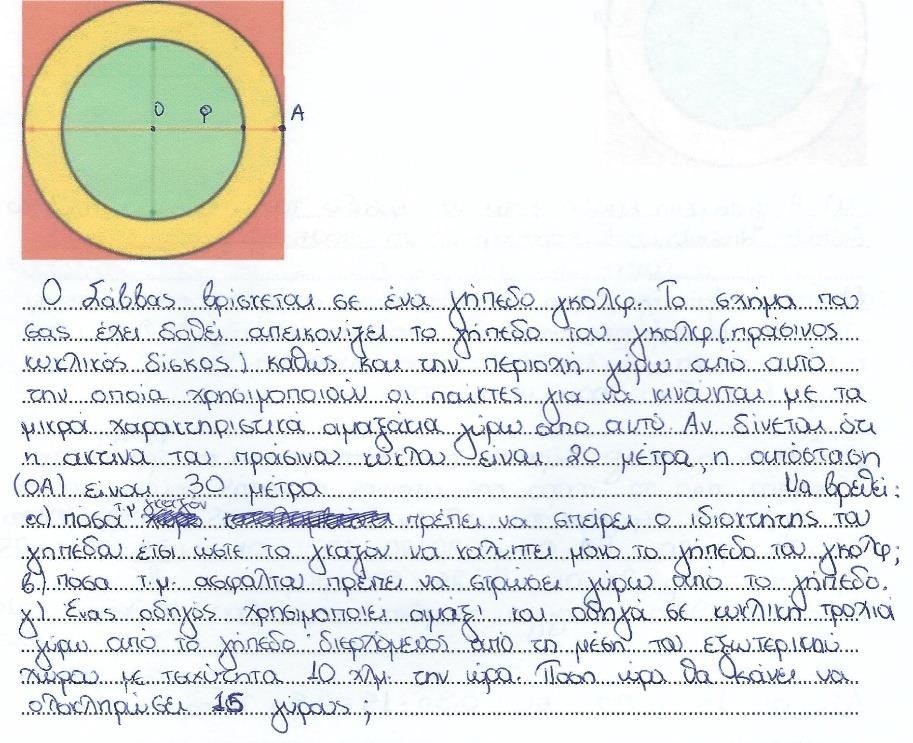 Ο ρ Α
Ο Σάββας βρίσκεται σε ένα γήπεδο γκολφ. Το σχήμα που
σας έχει δοθεί απεικονίζει το γήπεδο του γκολφ (πράσινος
κυκλικός δίσκος) καθώς και την περιοχή γύρω από αυτό
την οποία χρησιμοποιούν οι παίκτες για να κινούνται με τα
μικρά χαρακτηριστικά αμαξάκια γύρω απο αυτό. Αν δίνεται ότι
η ακτίνα του πράσινου κύκλου είναι 20 μέτρα, η απόσταση
(ΟΑ) είναι 30 μέτρα Να βρεθεί:
α) πόσα τ.μ γκαζόν πρέπει να σπείρει ο ιδιοκτήτης του
γηπέδου έτσι ώστε το γκαζόν να καλύπτει μόνο το γήπεδο του γκολφ;
β) πόσα τ.μ. ασφάλτου πρέπει να στρώσει γύρω από το γήπεδο.
γ) Ένας οδηγός χρησιμοποιεί αμάξι και οδηγά σε κυκλική τροχιά
γύρω από το γήπεδο διερχόμενος από τη μέση του εξωτερικού
χώρου με ταχύτητα 10 χλμ. την ώρα. Πόση ώρα θα κάνει να
ολοκληρώσει 15 γύρους;